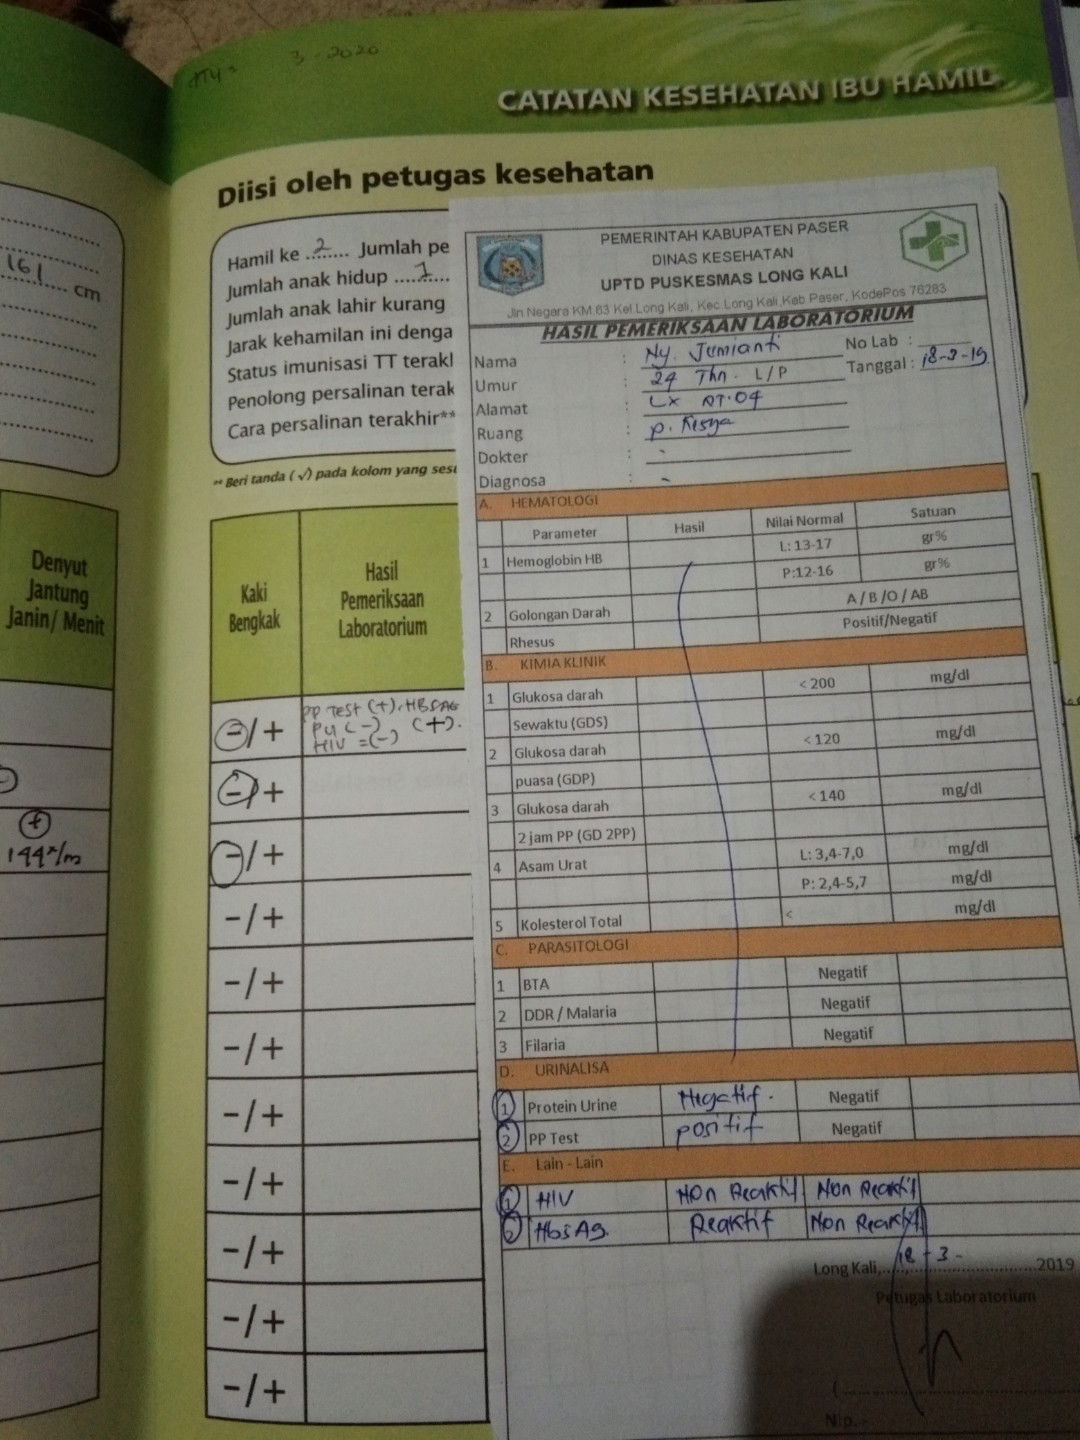 3-2020
CATATAN KESEHATAN IBU HAMIL
Diisi oleh petugas kesehatan
Hamil ke 2 Jumlah pe
Jumlah anak hidup 1
Jumlah anak lahir kurang
Jarak kehamilan ini denga
Status imunisasi TT terakl
Penolong persalinan terak
Cara persalinan terakhir**
** Beri tanda (√) pada kolom yang sesu
161 cm
Denyut
Jantung
Janin/ Menit
Kaki
Bengkak
Hasil
Pemeriksaan
Laboratorium
-/+ PP TEST (+), HBSAG
PU (-) (+).
HIV = (-)
-/+
+
144x/m
-/+
-/+
-/+
-/+
-/+
-/+
-/+
-/+
-/+
PEMERINTAH KABUPATEN PASER
DINAS KESEHATAN
UPTD PUSKESMAS LONG KALI
Jln Negara KM.63 Kel.Long Kali, Kec.Long Kali,Kab Paser, KodePos 76283
HASIL PEMERIKSAAN LABORATORIUM
Nama : Ny. Jumianti No Lab :
Umur : 24 Thn. L/P Tanggal : 18-3-19
Alamat : LK RT.04
Ruang : P.
Dokter : -
Diagnosa : -
A. HEMATOLOGI
Parameter Hasil Nilai Normal Satuan
1 Hemoglobin HB L: 13-17 gr%
P:12-16 gr%
2 Golongan Darah A / B /O / AB
Rhesus Positif/Negatif
B. KIMIA KLINIK
1 Glukosa darah < 200 mg/dl
Sewaktu (GDS)
2 Glukosa darah < 120 mg/dl
puasa (GDP)
3 Glukosa darah < 140 mg/dl
2 jam PP (GD 2PP)
4 Asam Urat L: 3,4-7,0 mg/dl
P: 2,4-5,7 mg/dl
5 Kolesterol Total < mg/dl
C. PARASITOLOGI
1 BTA Negatif
2 DDR / Malaria Negatif
3 Filaria Negatif
D. URINALISA
1 Protein Urine Negatif. Negatif
2 PP Test positif Negatif
E. Lain - Lain
1 HIV Non Reaktif Non Reaktif
2 HbsAg. Reaktif Non Reaktif
Long Kali, 18-3- 2019
Petugas Laboratorium
(
Nip.